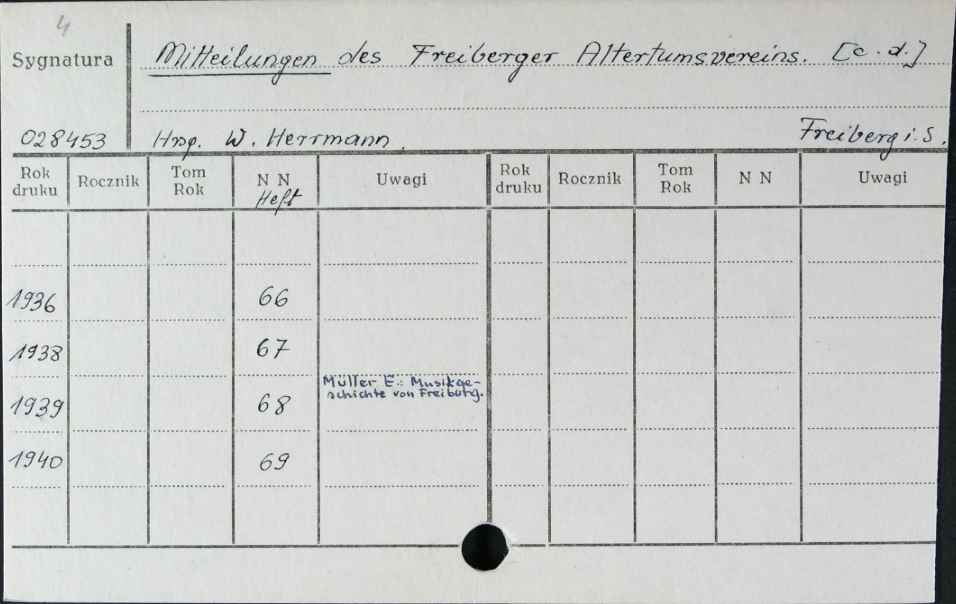 4
Sygnatura
Mitteilungen des Freiberger Altertumsvereins. [c.d.]
028453 Hrsg. W. Herrmann. Freiberg i. S.
Rok druku Rocznik Tom Rok N N Heft Uwagi Rok druku Rocznik Tom Rok N N Uwagi
1936 66
1938 67
1939 68 Müller E.: Musikge-
schichte von Freiburg.
1940 69